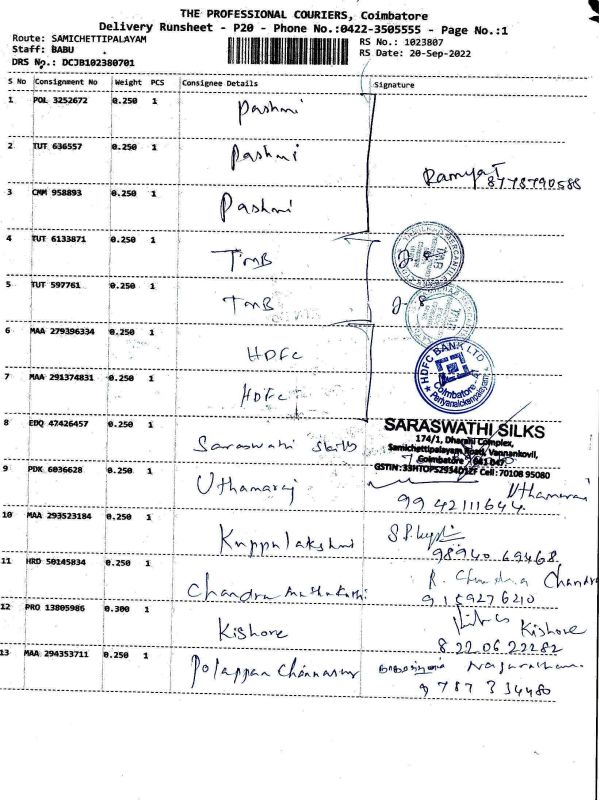 THE PROFESSIONAL COURIERS, Coimbatore
Delivery Runsheet - P20 - Phone No.:0422-3505555 - Page No.:1
Route: SAMICHETTIPALAYAM
RS No.: 1023807
Staff: BABU
RS Date: 20-Sep-2022
DRS No.: DCJB102380701
S No Consignment No Weight PCS Consignee Details Signature
1 POL 3252672 0.250 1 Pashmi
2 TUT 636557 0.250 1 Pashmi
Ramya T
8778790588
3 CMM 958893 0.250 1 Pashmi
4 TUT 6133871 0.250 1 TMB
5 TUT 597761 0.250 1 TMB
6 MAA 279396334 0.250 1 HDFC
HDFC BANK LTD
Coimbatore
Periyanaickenpalayam
7 MAA 291374831 0.250 1 HDFC
8 EDQ 47426457 0.250 1 Saraswathi
SARASWATHI SILKS
174/1, Dharani Complex,
Samichettipalayam Road, Vannankovil,
Coimbatore - 641 047
Cell : 70108 95080
9 PDK 6036628 0.250 1 Uthamaraj
9942111644
10 MAA 293523184 0.250 1 Kuppulakshmi
98940 69468
11 HRD 50145834 0.250 1 Chandra
R. Chandra Chandra
9159276210
12 PRO 13805986 0.300 1 Kishore
Kishore
8 22 06 22282
13 MAA 294353711 0.250 1
9787334480